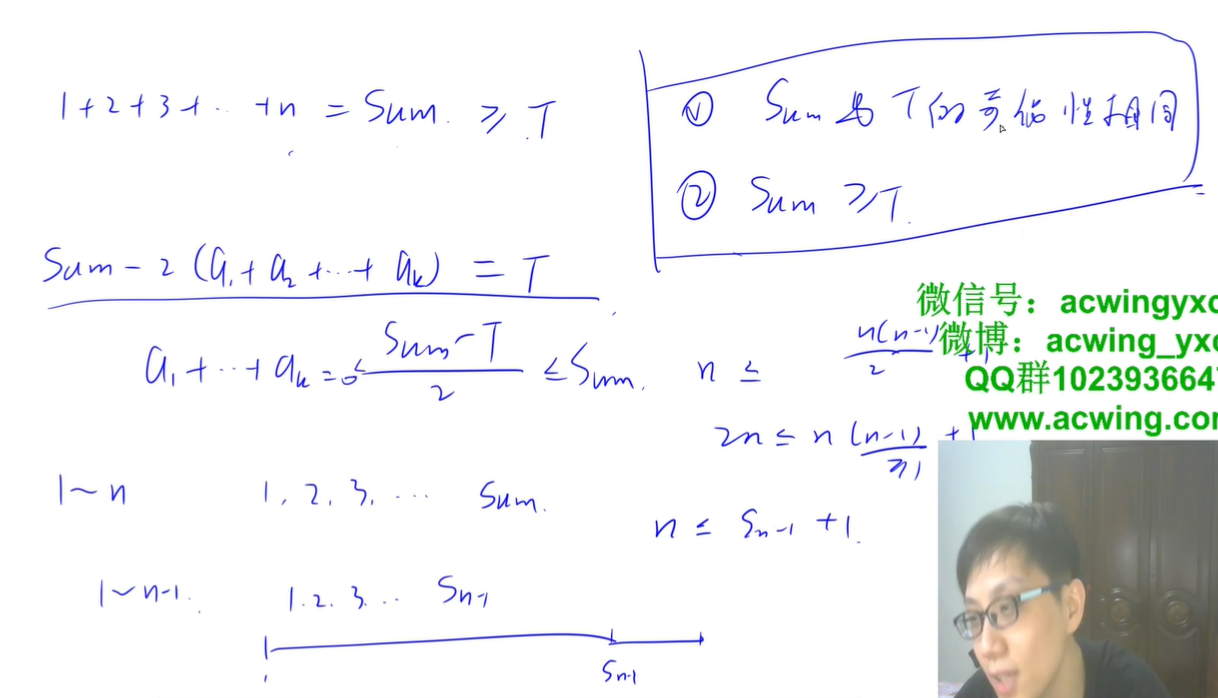 1+2+3+ ‥ +n = Sum. ≥ T
① Sum与T的奇偶性相同
② Sum ≥T.
Sum - 2 (a₁ + a₂ + ‥ + aₖ) = T
a₁ + ‥ + aₖ = 0≤ (Sum - T)/2 ≤ Sum.
n ≤ n(n-1)/2 + 1
2n ≤ n (n-1) + 1
≥1
n ≤ Sn-1 + 1.
1~n 1, 2, 3, … Sum.
1~n-1. 1. 2. 3. ‥ Sn-1
1 Sn-1
微信号：acwingyxc
微博：acwing_yxc
QQ群1023936647
www.acwing.com